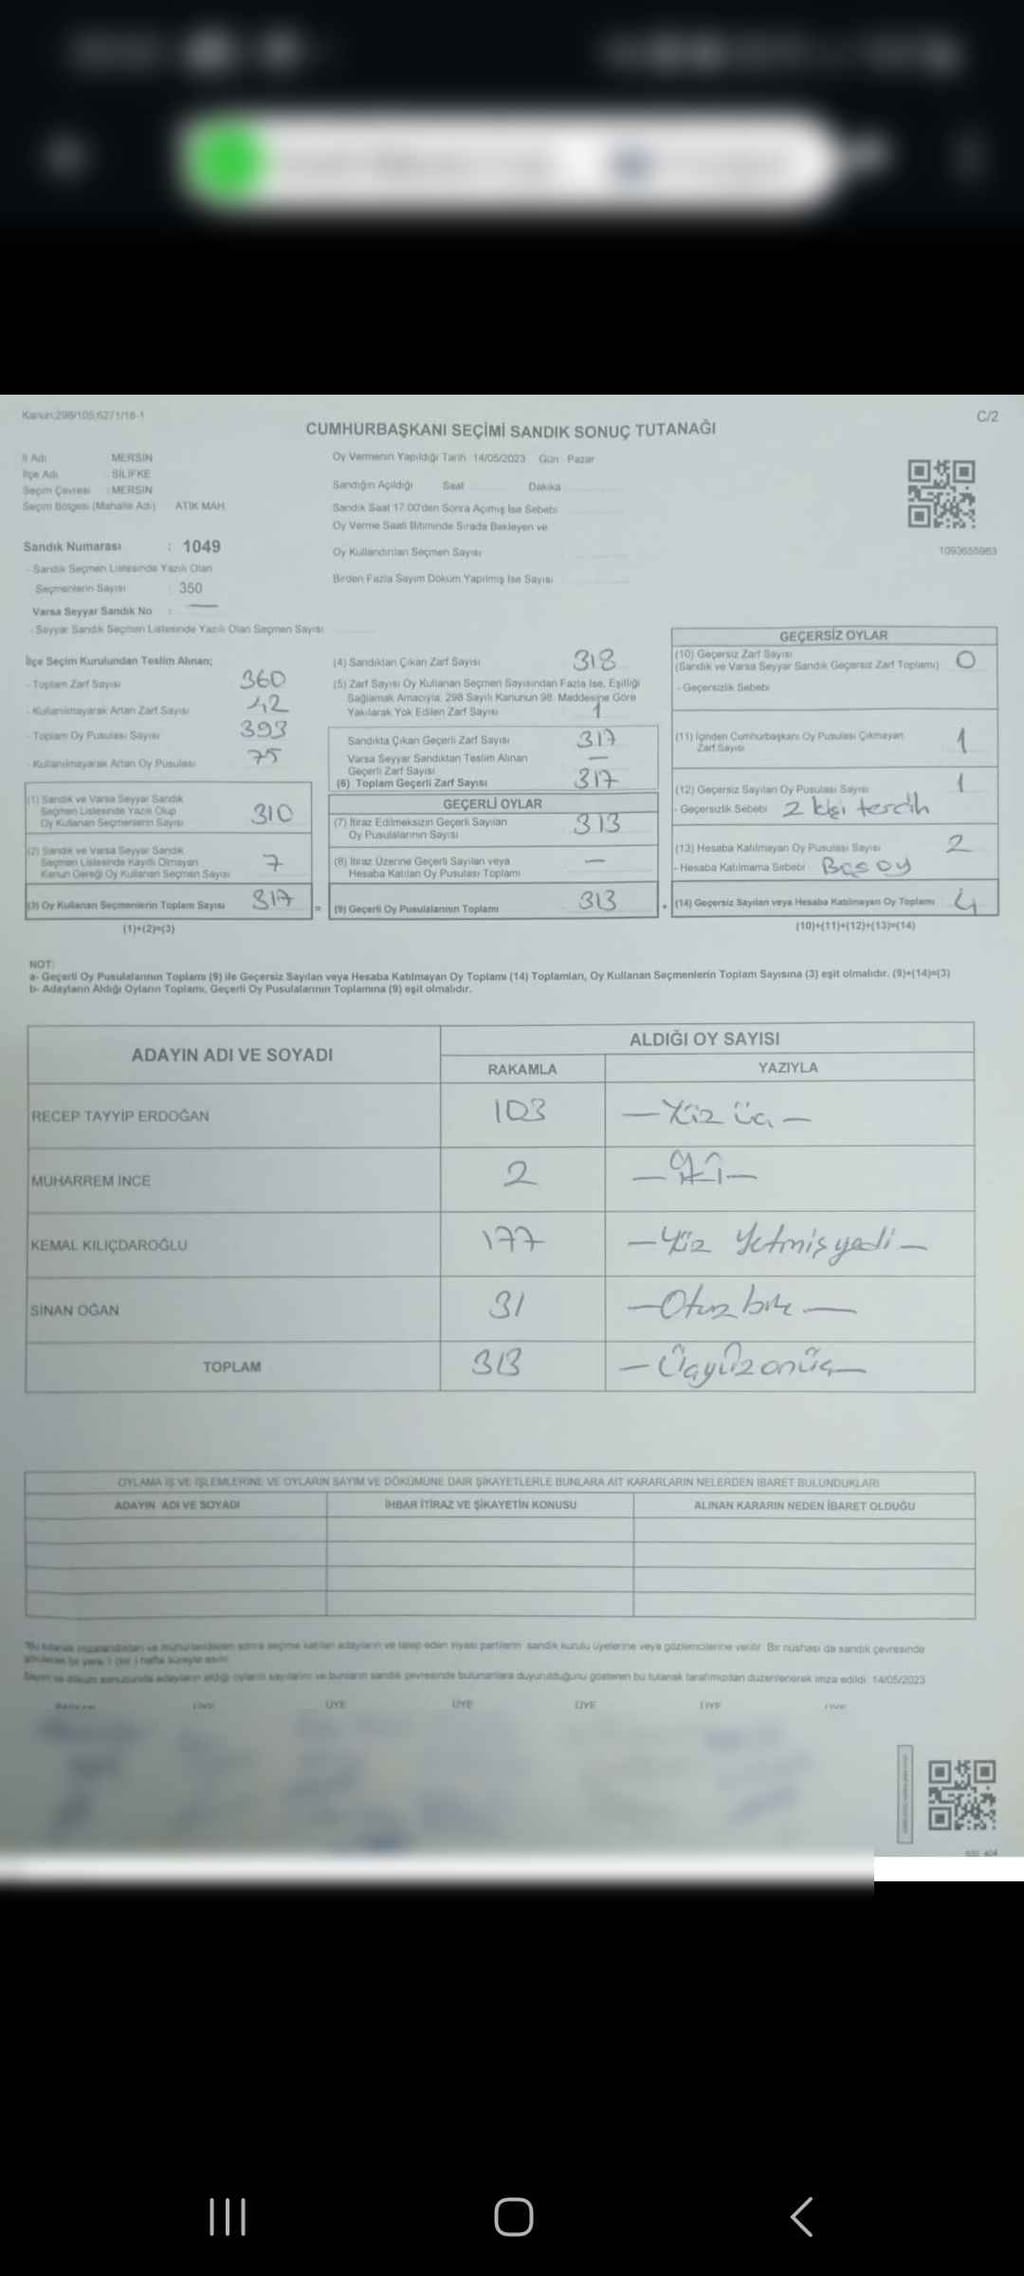 Kanun:298/105;6271/16-1
C/2
CUMHURBAŞKANI SEÇİMİ SANDIK SONUÇ TUTANAĞI
İl Adı MERSİN
İlçe Adı : SİLİFKE
Seçim Çevresi : MERSİN
Seçim Bölgesi (Mahalle Adı) ATİK MAH.
Sandık Numarası : 1049
- Sandık Seçmen Listesinde Yazılı Olan
Seçmenlerin Sayısı : 350
Varsa Seyyar Sandık No : —
- Seyyar Sandık Seçmen Listesinde Yazılı Olan Seçmen Sayısı
Oy Vermenin Yapıldığı Tarih 14/05/2023 Gün Pazar
Sandığın Açıldığı Saat Dakika
Sandık Saat 17.00'den Sonra Açımış İse Sebebi
Oy Verme Saati Bitiminde Sırada Bekleyen ve
Oy Kullandırılan Seçmen Sayısı
Birden Fazla Sayım Döküm Yapılmış İse Sayısı
1093655963
İlçe Seçim Kurulundan Teslim Alınan;
- Toplam Zarf Sayısı 360
- Kullanılmayarak Artan Zarf Sayısı 42
- Toplam Oy Pusulası Sayısı 393
- Kullanılmayarak Artan Oy Pusulası 75
(1) Sandık ve Varsa Seyyar Sandık
Seçmen Listesinde Yazılı Olup
Oy Kullanan Seçmenlerin Sayısı 310
(2) Sandık ve Varsa Seyyar Sandık
Seçmen Listesinde Kayıtlı Olmayan
Kanun Gereği Oy Kullanan Seçmen Sayısı 7
(3) Oy Kullanan Seçmenlerin Toplam Sayısı 317
(1)+(2)=(3)
(4) Sandıktan Çıkan Zarf Sayısı 318
(5) Zarf Sayısı Oy Kullanan Seçmen Sayısından Fazla İse, Eşitliği
Sağlamak Amacıyla, 298 Sayılı Kanunun 98. Maddesine Göre
Yakılarak Yok Edilen Zarf Sayısı 1
Sandıkta Çıkan Geçerli Zarf Sayısı 317
Varsa Seyyar Sandıktan Teslim Alınan
Geçerli Zarf Sayısı —
(6) Toplam Geçerli Zarf Sayısı 317
GEÇERLİ OYLAR
(7) İtiraz Edilmeksizin Geçerli Sayılan
Oy Pusulalarının Sayısı 313
(8) İtiraz Üzerine Geçerli Sayılan veya
Hesaba Katılan Oy Pusulası Toplamı —
= (9) Geçerli Oy Pusulalarının Toplamı 313
GEÇERSİZ OYLAR
(10) Geçersiz Zarf Sayısı
(Sandık ve Varsa Seyyar Sandık Geçersiz Zarf Toplamı) 0
- Geçersizlik Sebebi
(11) İçinden Cumhurbaşkanı Oy Pusulası Çıkmayan
Zarf Sayısı 1
(12) Geçersiz Sayılan Oy Pusulası Sayısı 1
- Geçersizlik Sebebi 2 kişi tercih
(13) Hesaba Katılmayan Oy Pusulası Sayısı 2
- Hesaba Katılmama Sebebi Boş oy
+ (14) Geçersiz Sayılan veya Hesaba Katılmayan Oy Toplamı 4
(10)+(11)+(12)+(13)=(14)
NOT:
a- Geçerli Oy Pusulalarının Toplamı (9) ile Geçersiz Sayılan veya Hesaba Katılmayan Oy Toplamı (14) Toplamları, Oy Kullanan Seçmenlerin Toplam Sayısına (3) eşit olmalıdır. (9)+(14)=(3)
b- Adayların Aldığı Oyların Toplamı, Geçerli Oy Pusulalarının Toplamına (9) eşit olmalıdır.
ADAYIN ADI VE SOYADI ALDIĞI OY SAYISI
RAKAMLA YAZIYLA
RECEP TAYYİP ERDOĞAN 103 — Yüz üç —
MUHARREM İNCE 2 — iki —
KEMAL KILIÇDAROĞLU 177 — Yüz Yetmiş yedi —
SİNAN OĞAN 31 — Otuz bir —
TOPLAM 313 — Üçyüz onüç —
OYLAMA İŞ VE İŞLEMLERİNE VE OYLARIN SAYIM VE DÖKÜMÜNE DAİR ŞİKAYETLERLE BUNLARA AİT KARARLARIN NELERDEN İBARET BULUNDUKLARI
ADAYIN ADI VE SOYADI İHBAR İTİRAZ VE ŞİKAYETİN KONUSU ALINAN KARARIN NEDEN İBARET OLDUĞU
seçime katılan adayların ve talep eden siyasi partilerin sandık kurulu üyelerine veya gözlemcilerine verilir. Bir nüshası da sandık çevresinde
adayların aldığı oyların sayılarını ve bunların sandık çevresinde bulunanlara duyurulduğunu gösteren bu tutanak tarafımızdan düzenlenerek imza edildi. 14/05/2023
ÜYE ÜYE ÜYE ÜYE